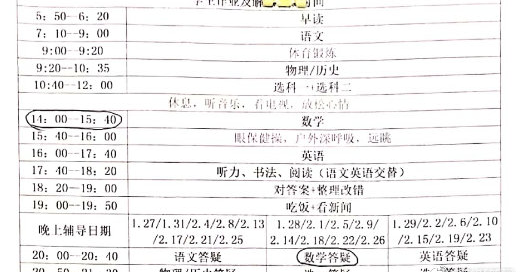 学生作业及解 时间
5：50--6：20 早读
7：10--9：00 语文
9:00--9:20 体育锻炼
9:20--10：35 物理/历史
10:40--12：00 选科一 选科二
休息，听音乐、看电视，放松心情
14：00--15：40 数学
15：40--16：00 眼保健操，户外深呼吸，远眺
16：00--17：40 英语
17：40--18：20 听力、书法、阅读（语文英语交替）
18：20--19：00 对答案+整理改错
19：00--19：50 吃饭+看新闻
晚上辅导日期 1.27/1.31/2.4/2.8/2.13 1.28/2.1/2.5/2.9/ 1.29/2.2/2.6/2.10
/2.17/2.21/2.25 2.14/2.18/2.22/2.26 /2.15/2.19/2.23
20：00--20：40 语文答疑 数学答疑 英语答疑